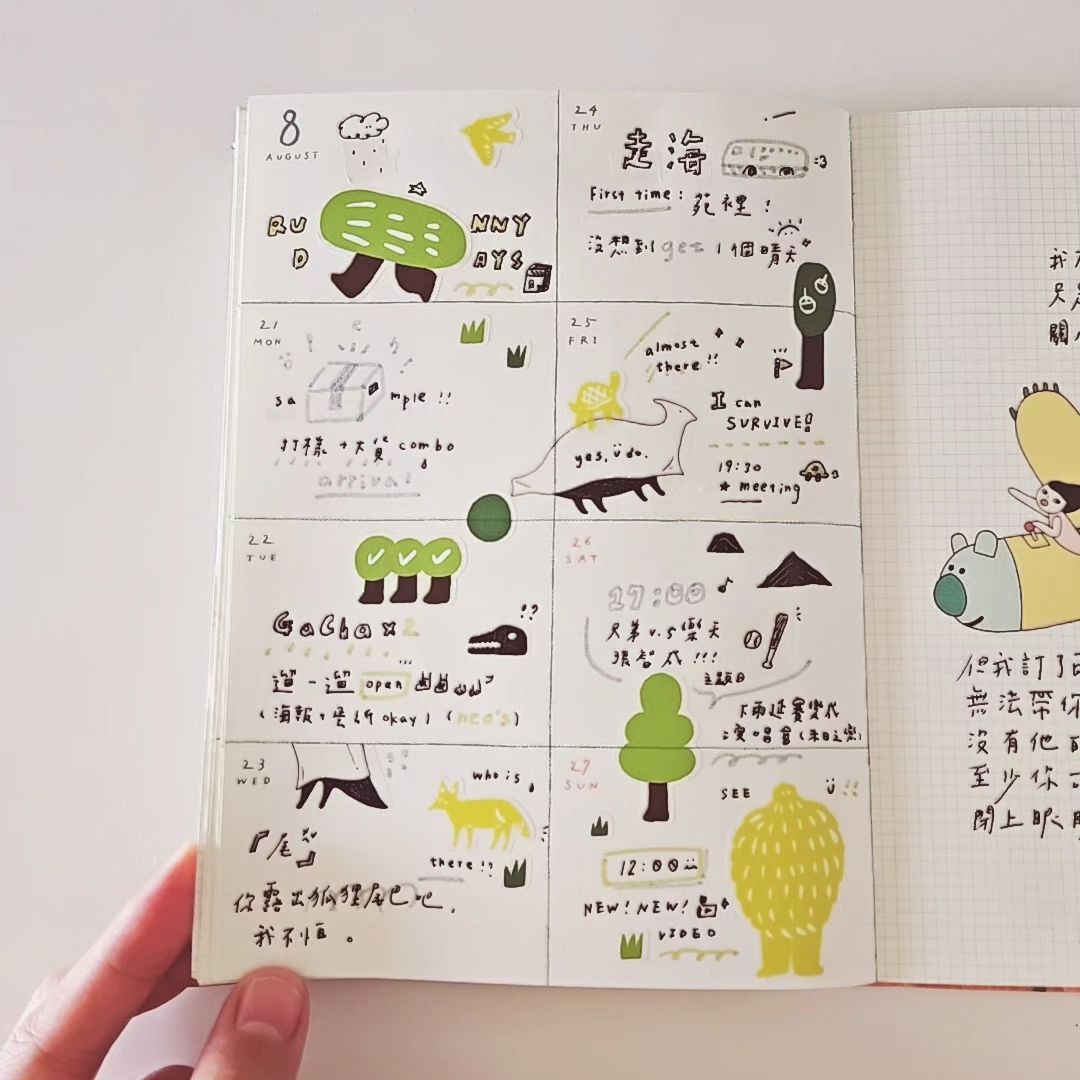 8
AUGUST
RU NNY
D AYS
21
MON
sa mple!!
打樣+大貨 combo
arrival
22
TUE
GaCha x2
遛一遛 open
(海報+
okay)
23
WED
who is
there!?
『尾』
你露出狐狸尾巴吧,
我不怕。
24
THU
走海
:3
First time: 苑裡!
沒想到 get 1個晴天
25
FRI
almost
there!!
yes, ü do.
I can
SURVIVE!
19:30
★ meeting
26
SAT
17:00
兄弟 v.s 樂天
張智成!!!
主題日
下雨延賽變成
演唱會
27
SUN
SEE ü !!
12:00
NEW! NEW!
VIDEO
我
只
關
但我訂了
無法帶你
沒有他
至少你
閉上眼